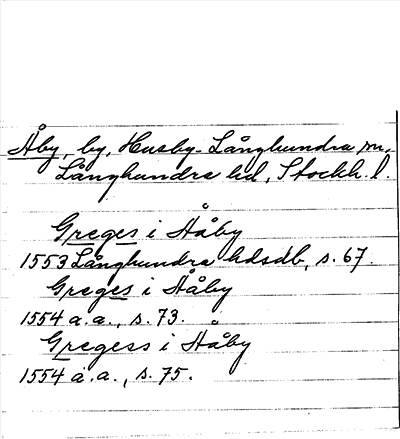 Åby, by, Husby-Långhundra sn,
Långhundra hd, Stockh. l.
Greges i Håby
1553 Långhundra hdsdb, s. 67.
Greges i Håby
1554 a.a., s. 73.
Gregess i Håby
1554 a.a., s. 75.